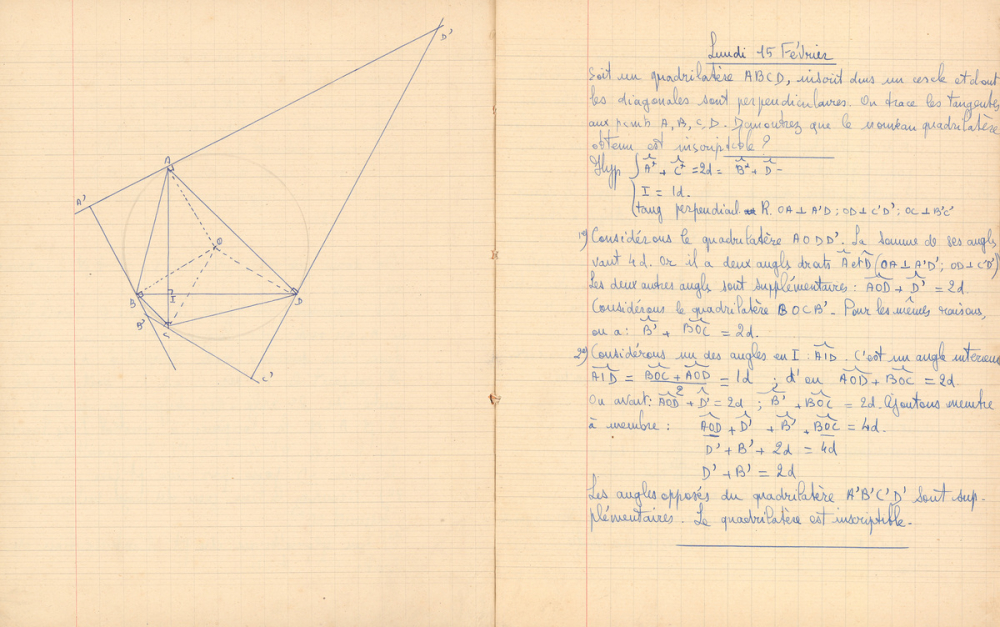 D'
A
A'
O
B
I
D
B'
C
C'
Lundi 15 Février
Soit un quadrilatère ABCD, inscrit dans un cercle et dont
les diagonales sont perpendiculaires. On trace les tangentes
aux points A, B, C, D. Démontrez que le nouveau quadrilatère
obtenu est inscriptible ?
Hyp { Â + Ĉ = 2d = B̂ + D̂
I = 1d.
tang perpendicul R. OA ⊥ A'D ; OD ⊥ C'D' ; OC ⊥ B'C'
1°) Considérons le quadrilatère AODD'. La somme de ses angles
vaut 4d. Or il a deux angles droits Â et D̂ (OA ⊥ A'D' ; OD ⊥ C'D')
Les deux autres angles sont supplémentaires : AOD + D' = 2d.
Considérons le quadrilatère BOCB'. Pour les mêmes raisons,
on a : B' + BOC = 2d.
2°) Considérons un des angles en I : AID. C'est un angle intérieur
AID = BOC + AOD / 2 = 1d ; d'où AOD + BOC = 2d.
On avait : AOD + D' = 2d ; B' + BOC = 2d. Ajoutons membre
à membre : AOD + D' + B' + BOC = 4d.
D' + B' + 2d = 4d
D' + B' = 2d
Les angles opposés du quadrilatère A'B'C'D' sont sup-
plémentaires. Le quadrilatère est inscriptible.